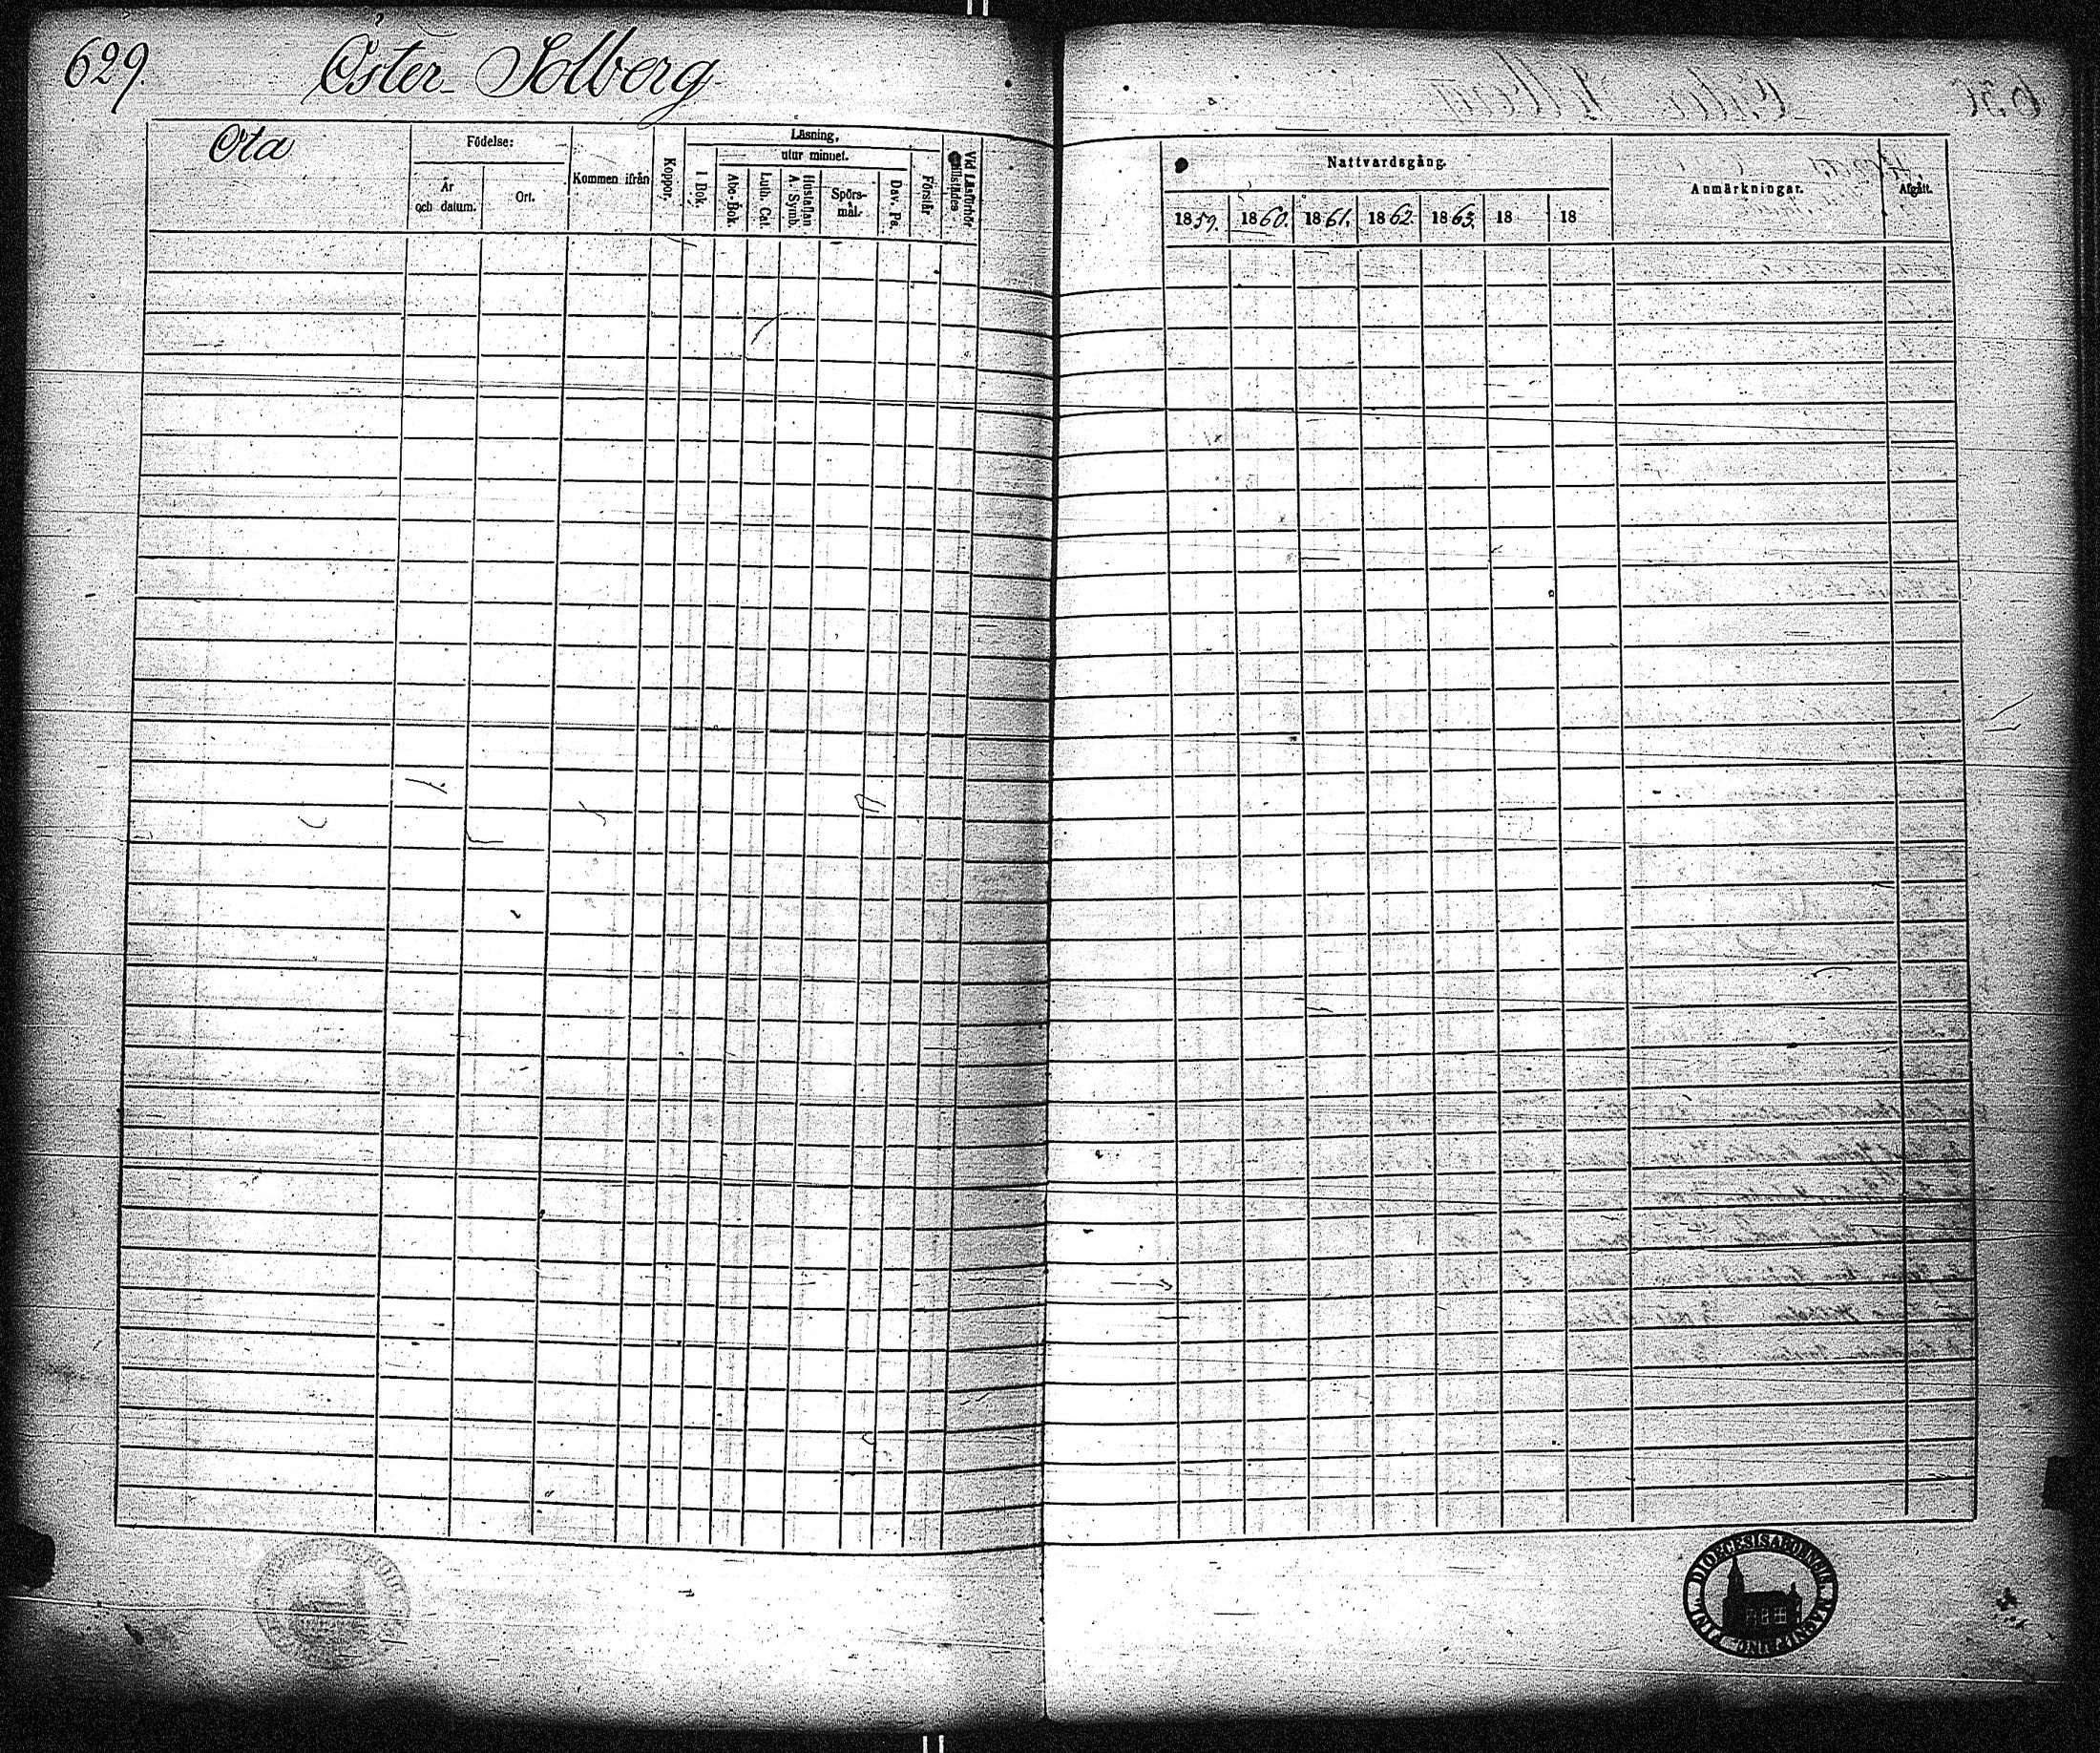 629.
Öster Solberg
Ota
Födelse:
År
och datum.
Ort.
Kommen ifrån
Koppor.
Läsning,
I Bok.
utur minnet.
Abc-Bok.
Luth. Cat.
Hustaflan
A. Symb.
Spörs-
mål.
Dav. Ps.
Förstår
Vid Läsförhör
tillstädes
Nattvardsgång.
1859.
1860.
1861.
1862.
1863.
18
18
Anmärkningar.
Afgått.